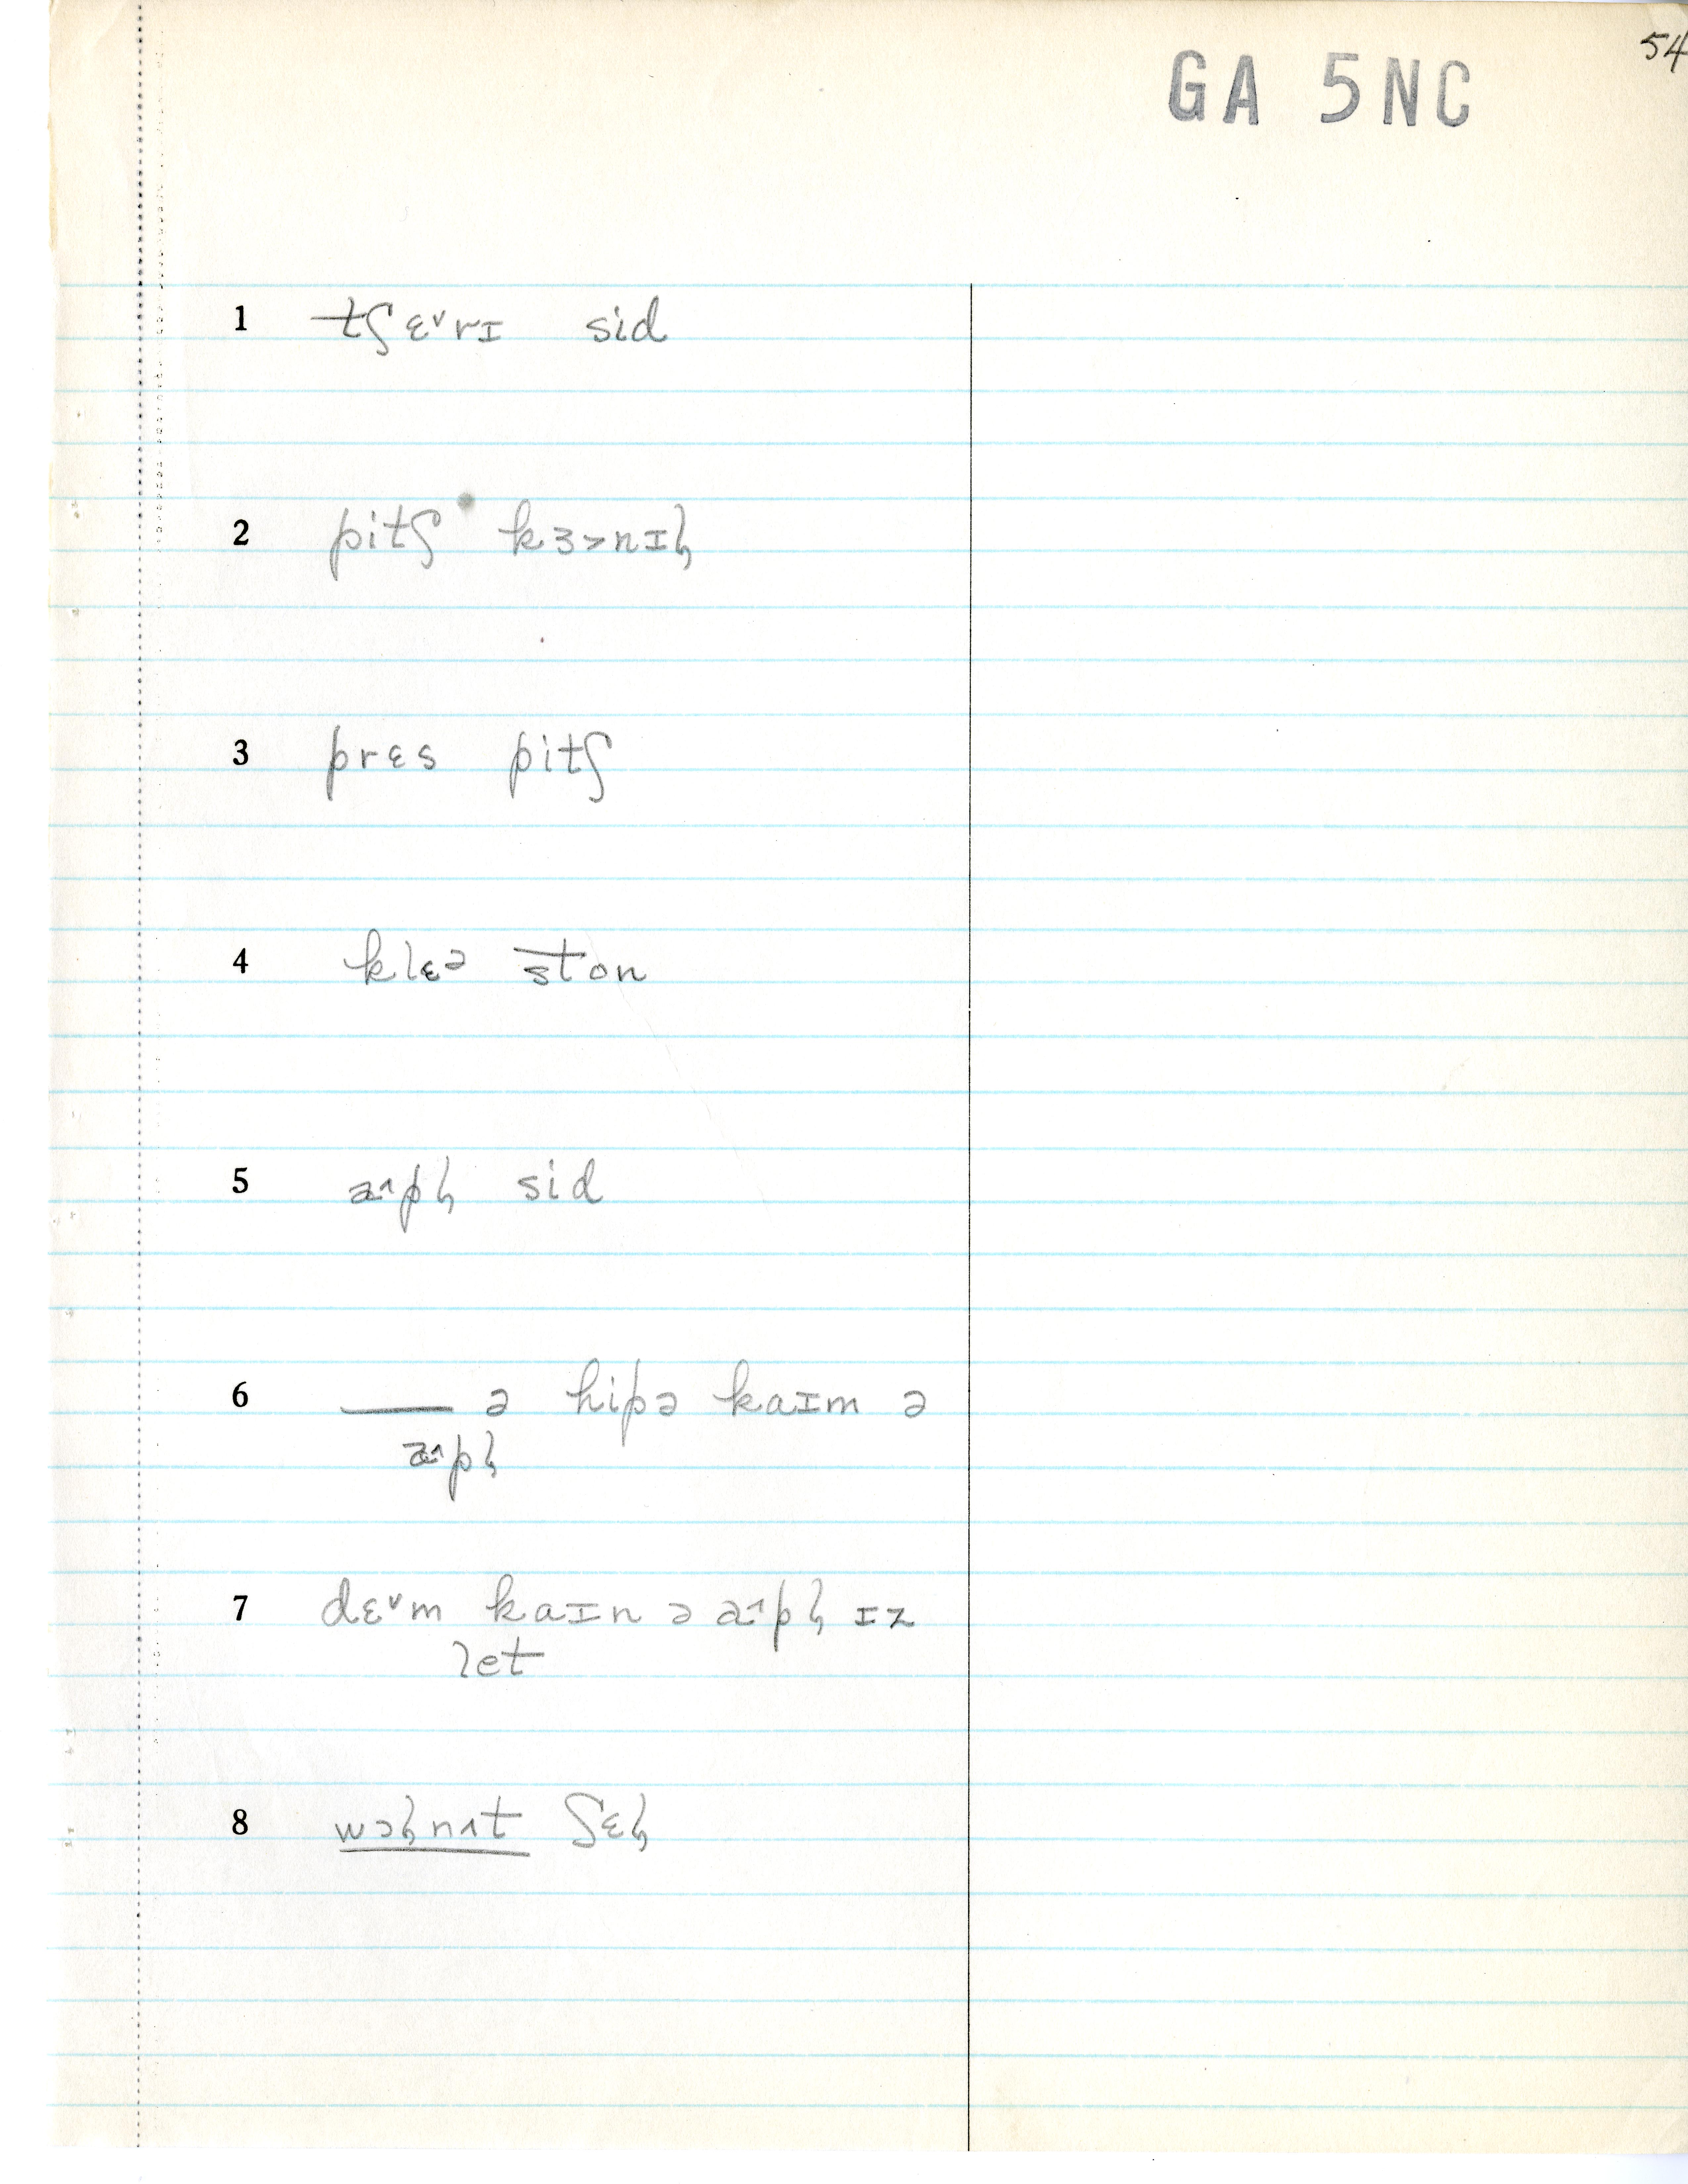 54
GA 5NC
1 tʃɛ˅rɪ sid
2 pitʃ kɜ˃nɪɫ̩
3 prɛs pitʃ
4 klɛə ston
5 æ˄pɫ̩ sid
6 —— ə hipə kaɪm ə
æ˄pɫ̩
7 dɛ˅m kaɪn ə æ˄pɫ̩ ɪz
let
8 wɔɫnʌt ʃɛɫ